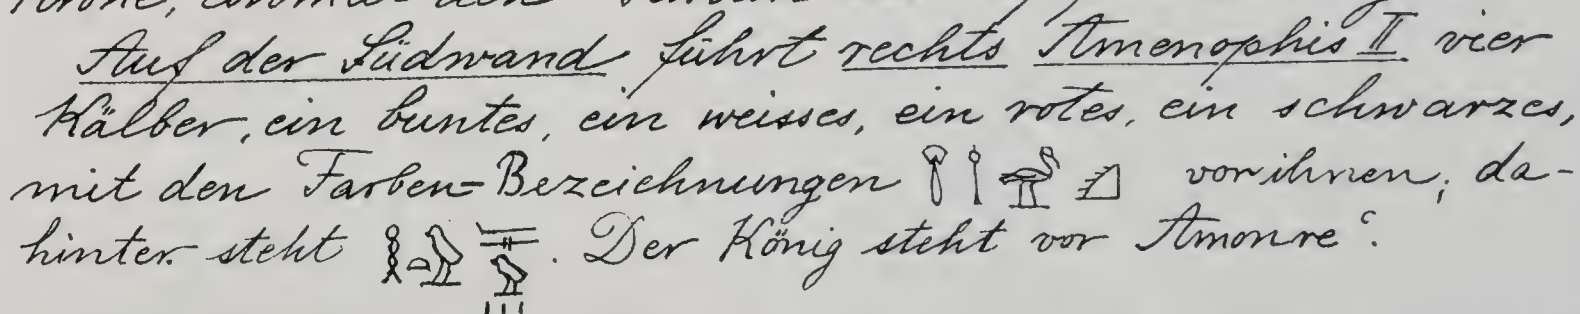 Auf der Südwand führt rechts Amenophis II vier
Kälber, ein buntes, ein weisses, ein rotes, ein schwarzes,
mit den Farben=Bezeichnungen vor ihnen, da-
hinter steht . Der König steht vor Amonre‘.